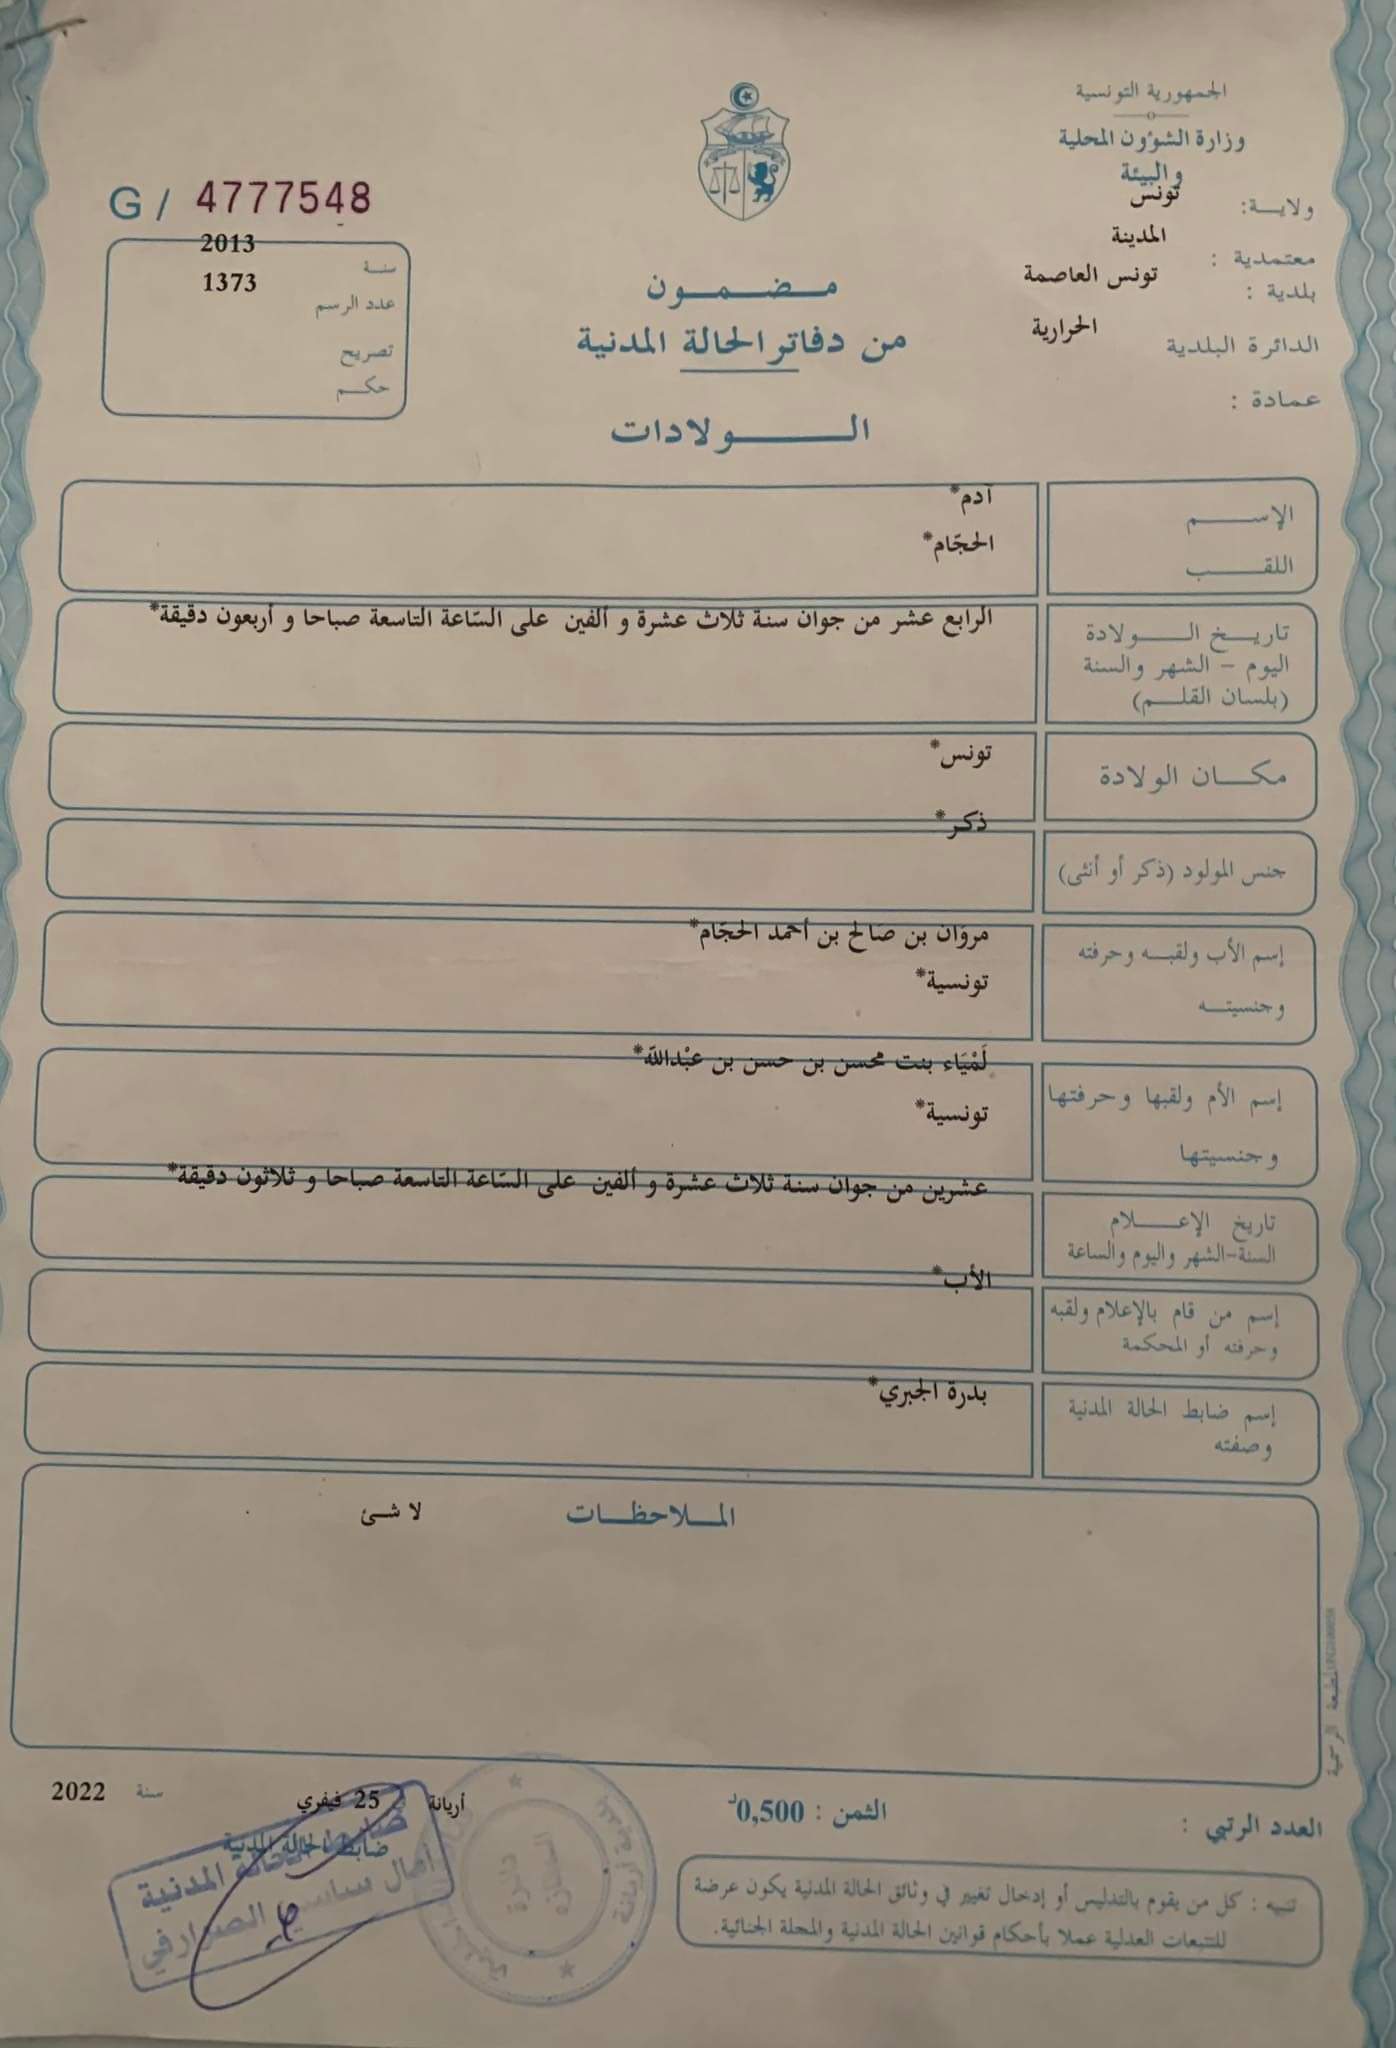 الجمهورية التونسية
وزارة الشؤون المحلية
والبيئة
ولايـــة: تونس
معتمدية : المدينة
بلدية : تونس العاصمة
الدائرة البلدية الحرارية
عمادة :
G / 4777548
سنة 2013
عدد الرسم 1373
تصريح
حكـــم
مـــضـــمـــون
من دفاتر الحالة المدنية
الـــــولادات
الإســـــم آدم*
اللقـــــب الحجّام*
تاريـــخ الـــولادة
اليوم - الشهر والسنة
(بلسان القلـــم)
الرابع عشر من جوان سنة ثلاث عشرة و ألفين على السّاعة التاسعة صباحا و أربعون دقيقة*
مكـــان الولادة تونس*
جنس المولود (ذكر أو أنثى) ذكر*
إسم الأب ولقبـــه وحرفته مروَان بن صَالح بن أحمد الحجّام*
وجنسيتـــه تونسية*
إسم الأم ولقبها وحرفتها لَمْيَاء بنت محسن بن حسن بن عبْدالله*
وجنسيتها تونسية*
تاريخ الإعـــلام
السنة-الشهر واليوم والساعة
عشرين من جوان سنة ثلاث عشرة و ألفين على السّاعة التاسعة صباحا و ثلاثون دقيقة*
إسم من قام بالإعلام ولقبه
وحرفته أو المحكمة
الأب*
إسم ضابط الحالة المدنية
وصفته
بدرة الجبري*
المـــلاحظـــات لا شـئ
المطبعة الرسمية
العدد الرتبي :
الثمن : 0,500د
أريانة 25 فيفري سنة 2022
ضابط الحالة المدنية
ضابط الحالة المدنية
آمال ساسي الصوارفي
بلدية أريانة
دائرة
تنبيه : كل من يقوم بالتدليس أو إدخال تغيير في وثائق الحالة المدنية يكون عرضة
للتتبعات العدلية عملا بأحكام قوانين الحالة المدنية والمجلة الجنائية.